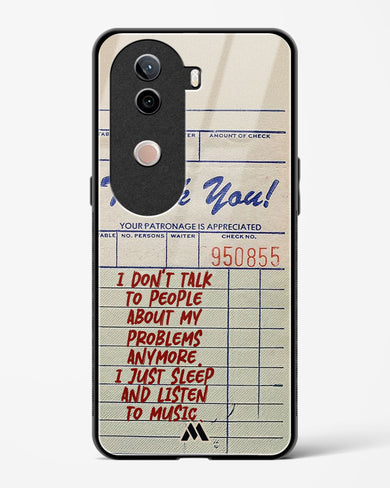 TER
AMOUNT OF CHECK
You!
YOUR PATRONAGE IS APPRECIATED
TABLE NO. PERSONS WAITER CHECK NO.
950855
I DON'T TALK
TO PEOPLE
ABOUT MY
PROBLEMS
ANYMORE.
I JUST SLEEP
AND LISTEN
TO MUSIC